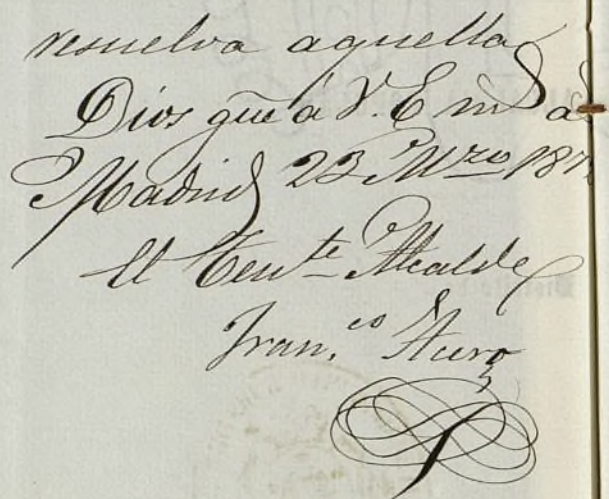 resuelva aquella
Dios gue á V. E. ms as
Madrid 23 Mzo 187
El Tente Alcalde
Fran.co